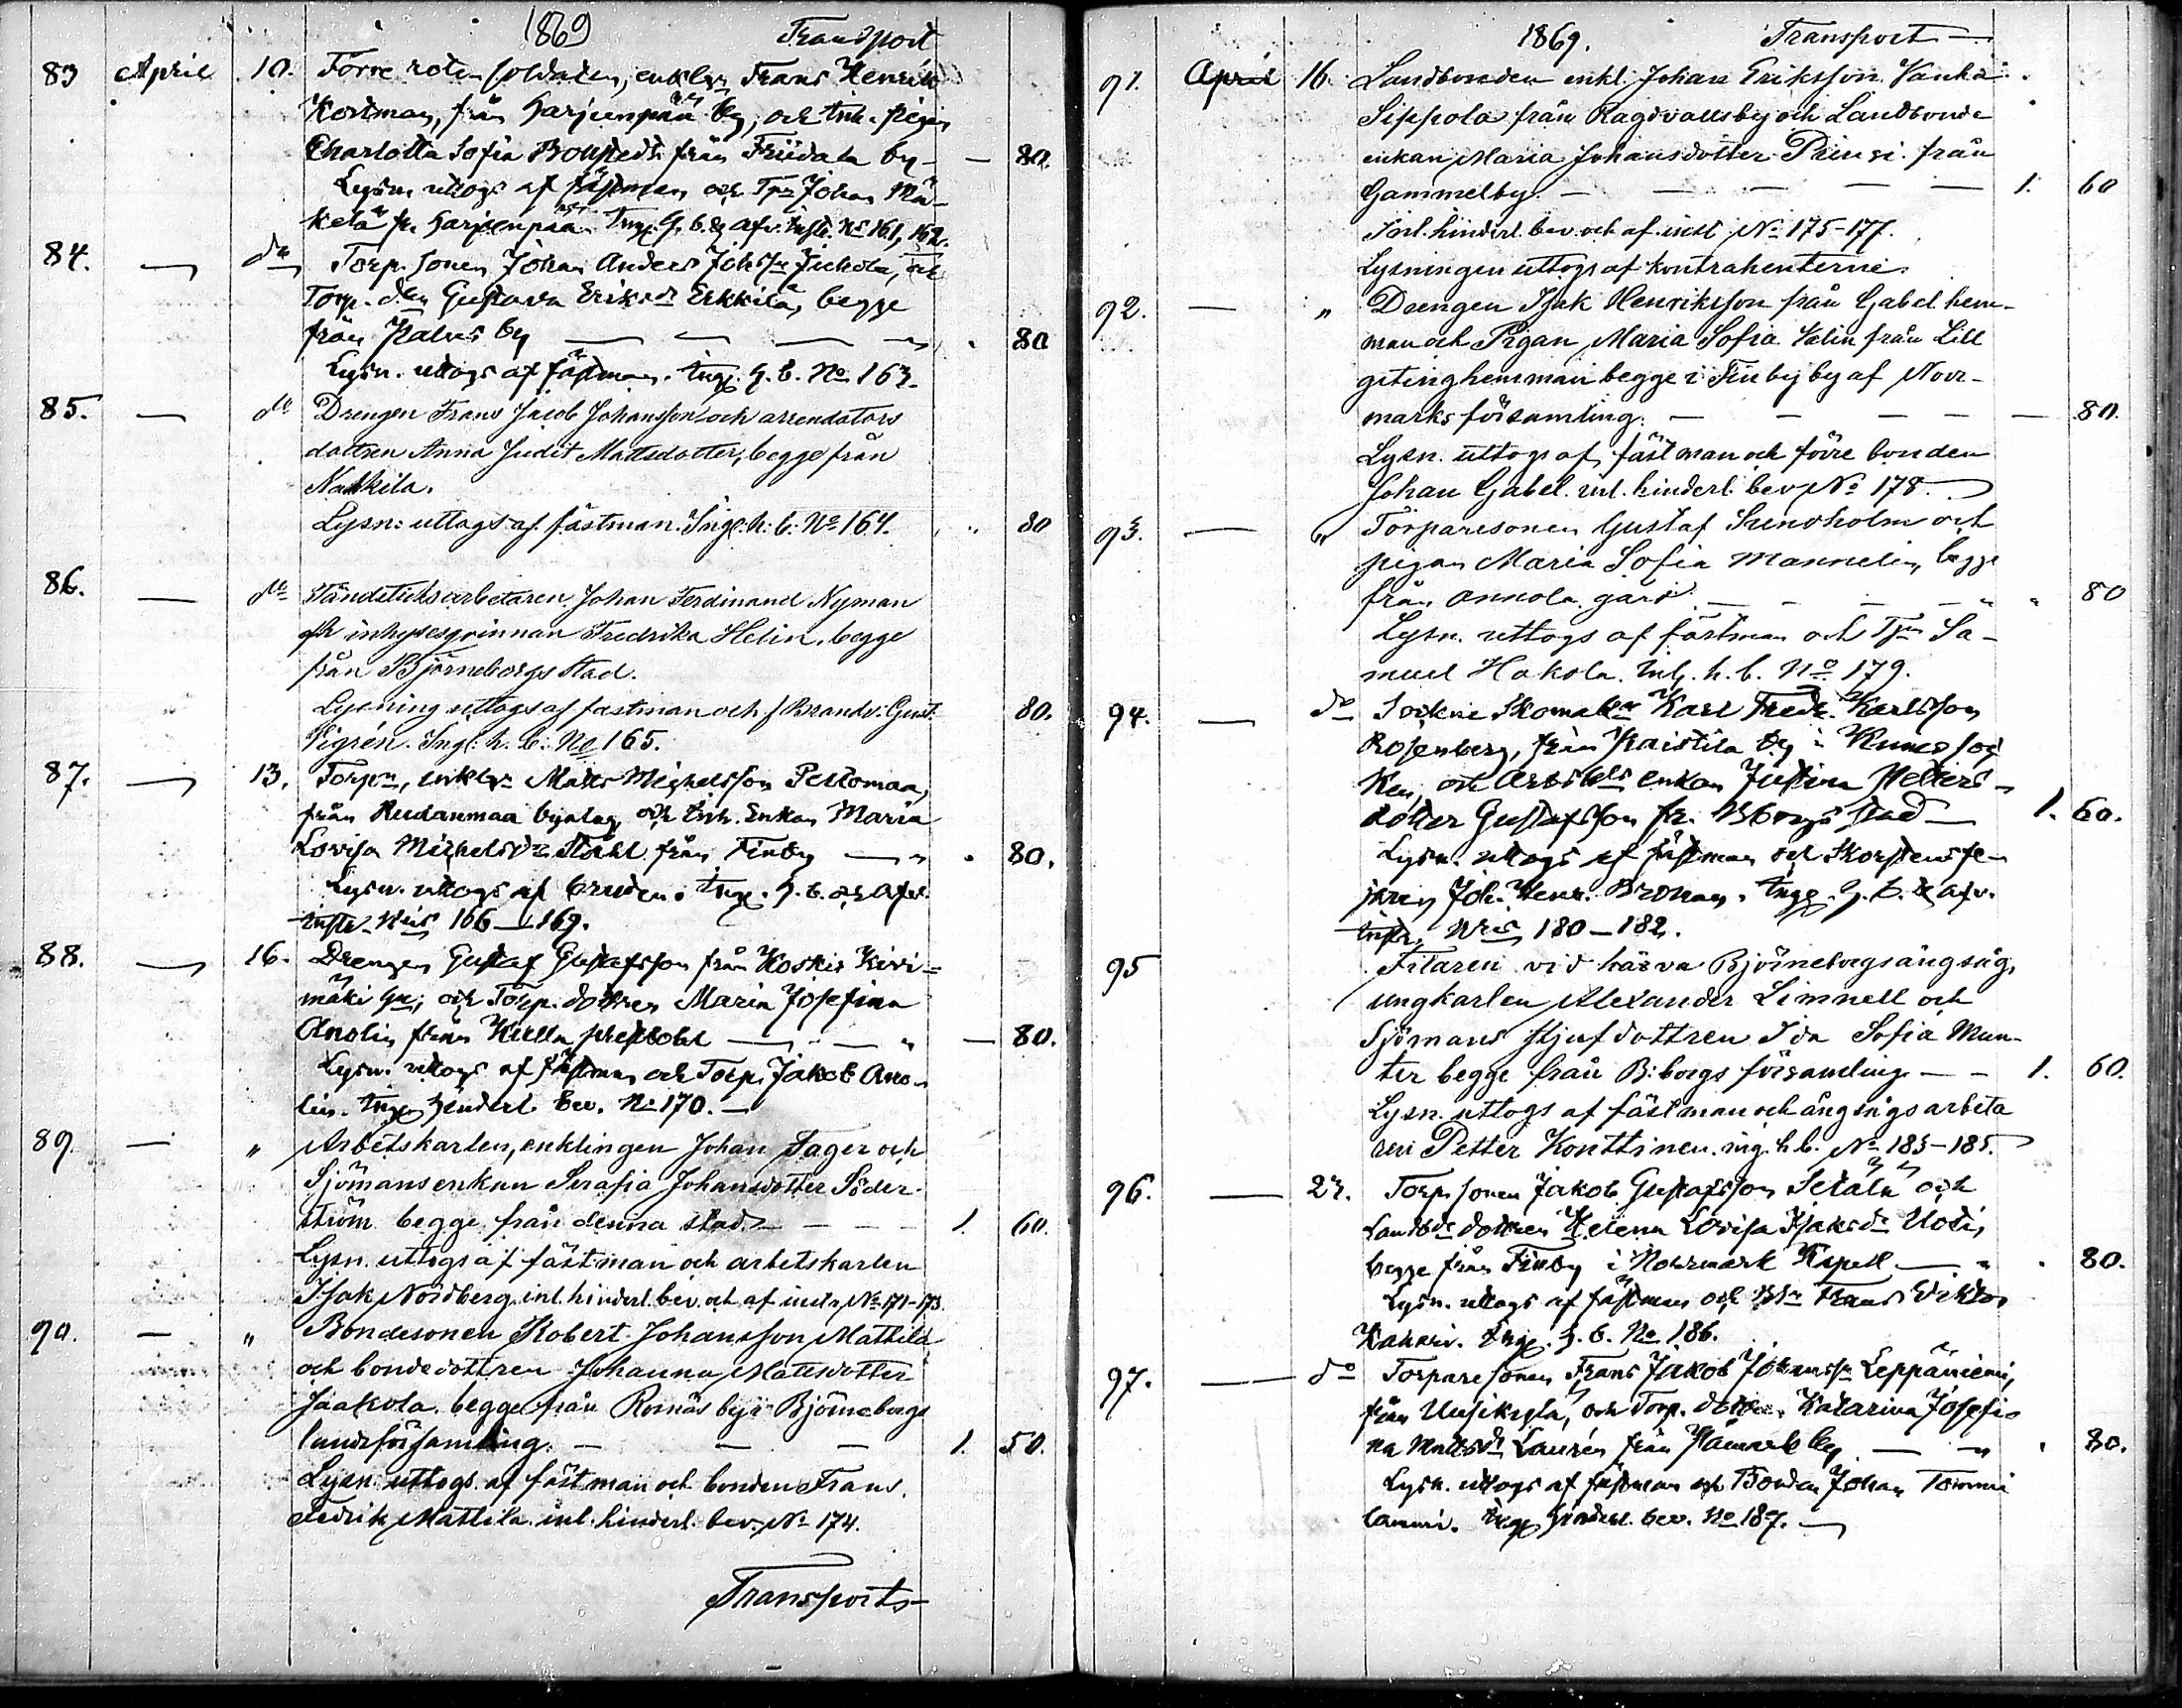 1869 Transport
83 April 10. Förre rote soldaten, enkl. Frans Henrik
Kortman, från Harjunpää by, och Inh. pigan
Charlotta Sofia från Friidala by — 80.
Lysn. uttogs af fästman och Tpr Johan Mä-
kelä fr. Harjunpää. Ing. h. b. & afv. Instr. No 161, 162.
84. — do Torp. sonen Johan Anders Johsson Juhola, och
Torp. d. Gustava Eriksdr Erkkilä, begge
från by — 80
Lysn. uttogs af fästman. Ing. h. b. No 163.
85. — do Drengen Frans Jacob Johansson och arrendators
dottren Anna Judit Mattsdotter, begge från
Nakkila.
Lysn: uttogs af fästman. Ingl: h: b: No 164. " 80
86. — do Tändsticksarbetaren Johan Ferdinand Nyman
och inhysesqvinnan Fredrika Helin, begge
från Björneborgs stad.
Lysning uttogs af fästman och f Brandv: Gust. 80.
Vigrén. Ingl: h. b: No 165.
87. — 13. Torpn, enkl. Matts Michelsson Peltomaa,
från Rudanmaa byalag och Inh. Enkan Maria
Lovisa Michelsdr Ståhl från Finby — " . 80.
Lysn. uttogs af bruden. Ing. h. b. och afv.
instr. 166—169.
88. — 16. Drengen Gustaf Gustafsson från Koskis Kivi-
mäki och Torp. dottren Maria Josefina
Anolin från Kulla — " — 80.
Lysn. uttogs af fästman och Torp. Jakob Ano-
lin. Ing. hinderl. bev. No 170. —
89. — " Arbetskarlen, enklingen Johan Fager och
Sjömansenkan Serafia Johansdotter Söder-
ström begge från denna stad. — 1. 60.
Lysn. uttogs af fästman och arbetskarlen
Isak Nordberg inl. hinderl. bev. och af instr. No 171-173.
90. — " Bondesonen Robert Johansson Mattila
och bondedottren Johanna Mattsdotter
Jaakola begge från Rosnäs by i Björneborgs
landsförsamling. — 1. 50.
Lysn. uttogs af fästman och bonden Frans
Fedrik Mattila inl. hinderl. bev. No 174.
Transport
1869. Transport —
91. April 16. Landbonden enkl. Johan Eriksson Vanha
Sippola från Ragvallsby och Landbonde
enkan Maria Johansdotter Prinsi från
Gammelby. — — — — — 1. 60
Inl. hinderl. bev. och af. inst No 175-177.
Lysningen uttogs af kontrahenterne
92. — " Drengen Isak Henriksson från Gabel hem-
man och Pigan Maria Sofia Salin från Lill
geting hemman begge i Finby by af Norr-
marks församling. — — — — — 80.
Lysn. uttogs af fästman och förre bonden
Johan Gabel. inl. hinderl. bev No 178.
93. — " Torparesonen Gustaf Sundholm och
pigan Maria Sofia Mannelin, begge
från Annola gård. — " " 80
Lysn. uttogs af fästman och Tjn Sa-
muel Hakola. Inl. h. b. No 179.
94. — do Sockne Skomak. Karl Fredr. Karlsson
Rosenberg, från Kaistila by i Kumo soc-
ken, och Arbets enkan Justina Petters-
dotter Gustafsson fr. Bborgs stad — 1. 60.
Lysn. uttogs af fästman och Skorstensfe-
jaren Joh. Henr. Broman. Ing. h. b. & afv.
instr. 180—182.
95 Filaren vid härva Björneborgs ångsåg,
ungkarlen Alexander Limnell och
Sjömans styfdottren Ida Sofia Mun-
ter begge från B:borgs församling — — 1. 60.
Lysn. uttogs af fästman och ångsågs arbeta
ren Petter Konttinen. ing. h b. No 183-185.
96. — 23. Torp. sonen Jakob Gustafsson Setälä och
Landb. dottren Helena Lovisa Isaksdr Uoti,
begge från Finby i Norrmark Kapell — " . 80.
Lysn. uttogs af fästman och Frans Viktor
Kahari. Ing. h. b. No 186.
97. — do Torparesonen Frans Jakob Johansson Leppäniemi,
från Uusikylä, och Torp. dottren Katarina Josefi-
na Mattsdr Laurén från by — " . 80.
Lysn. uttogs af fästman och Bonden Johan Tommi
lammi. Ing. hinderl. bev. No 187. —